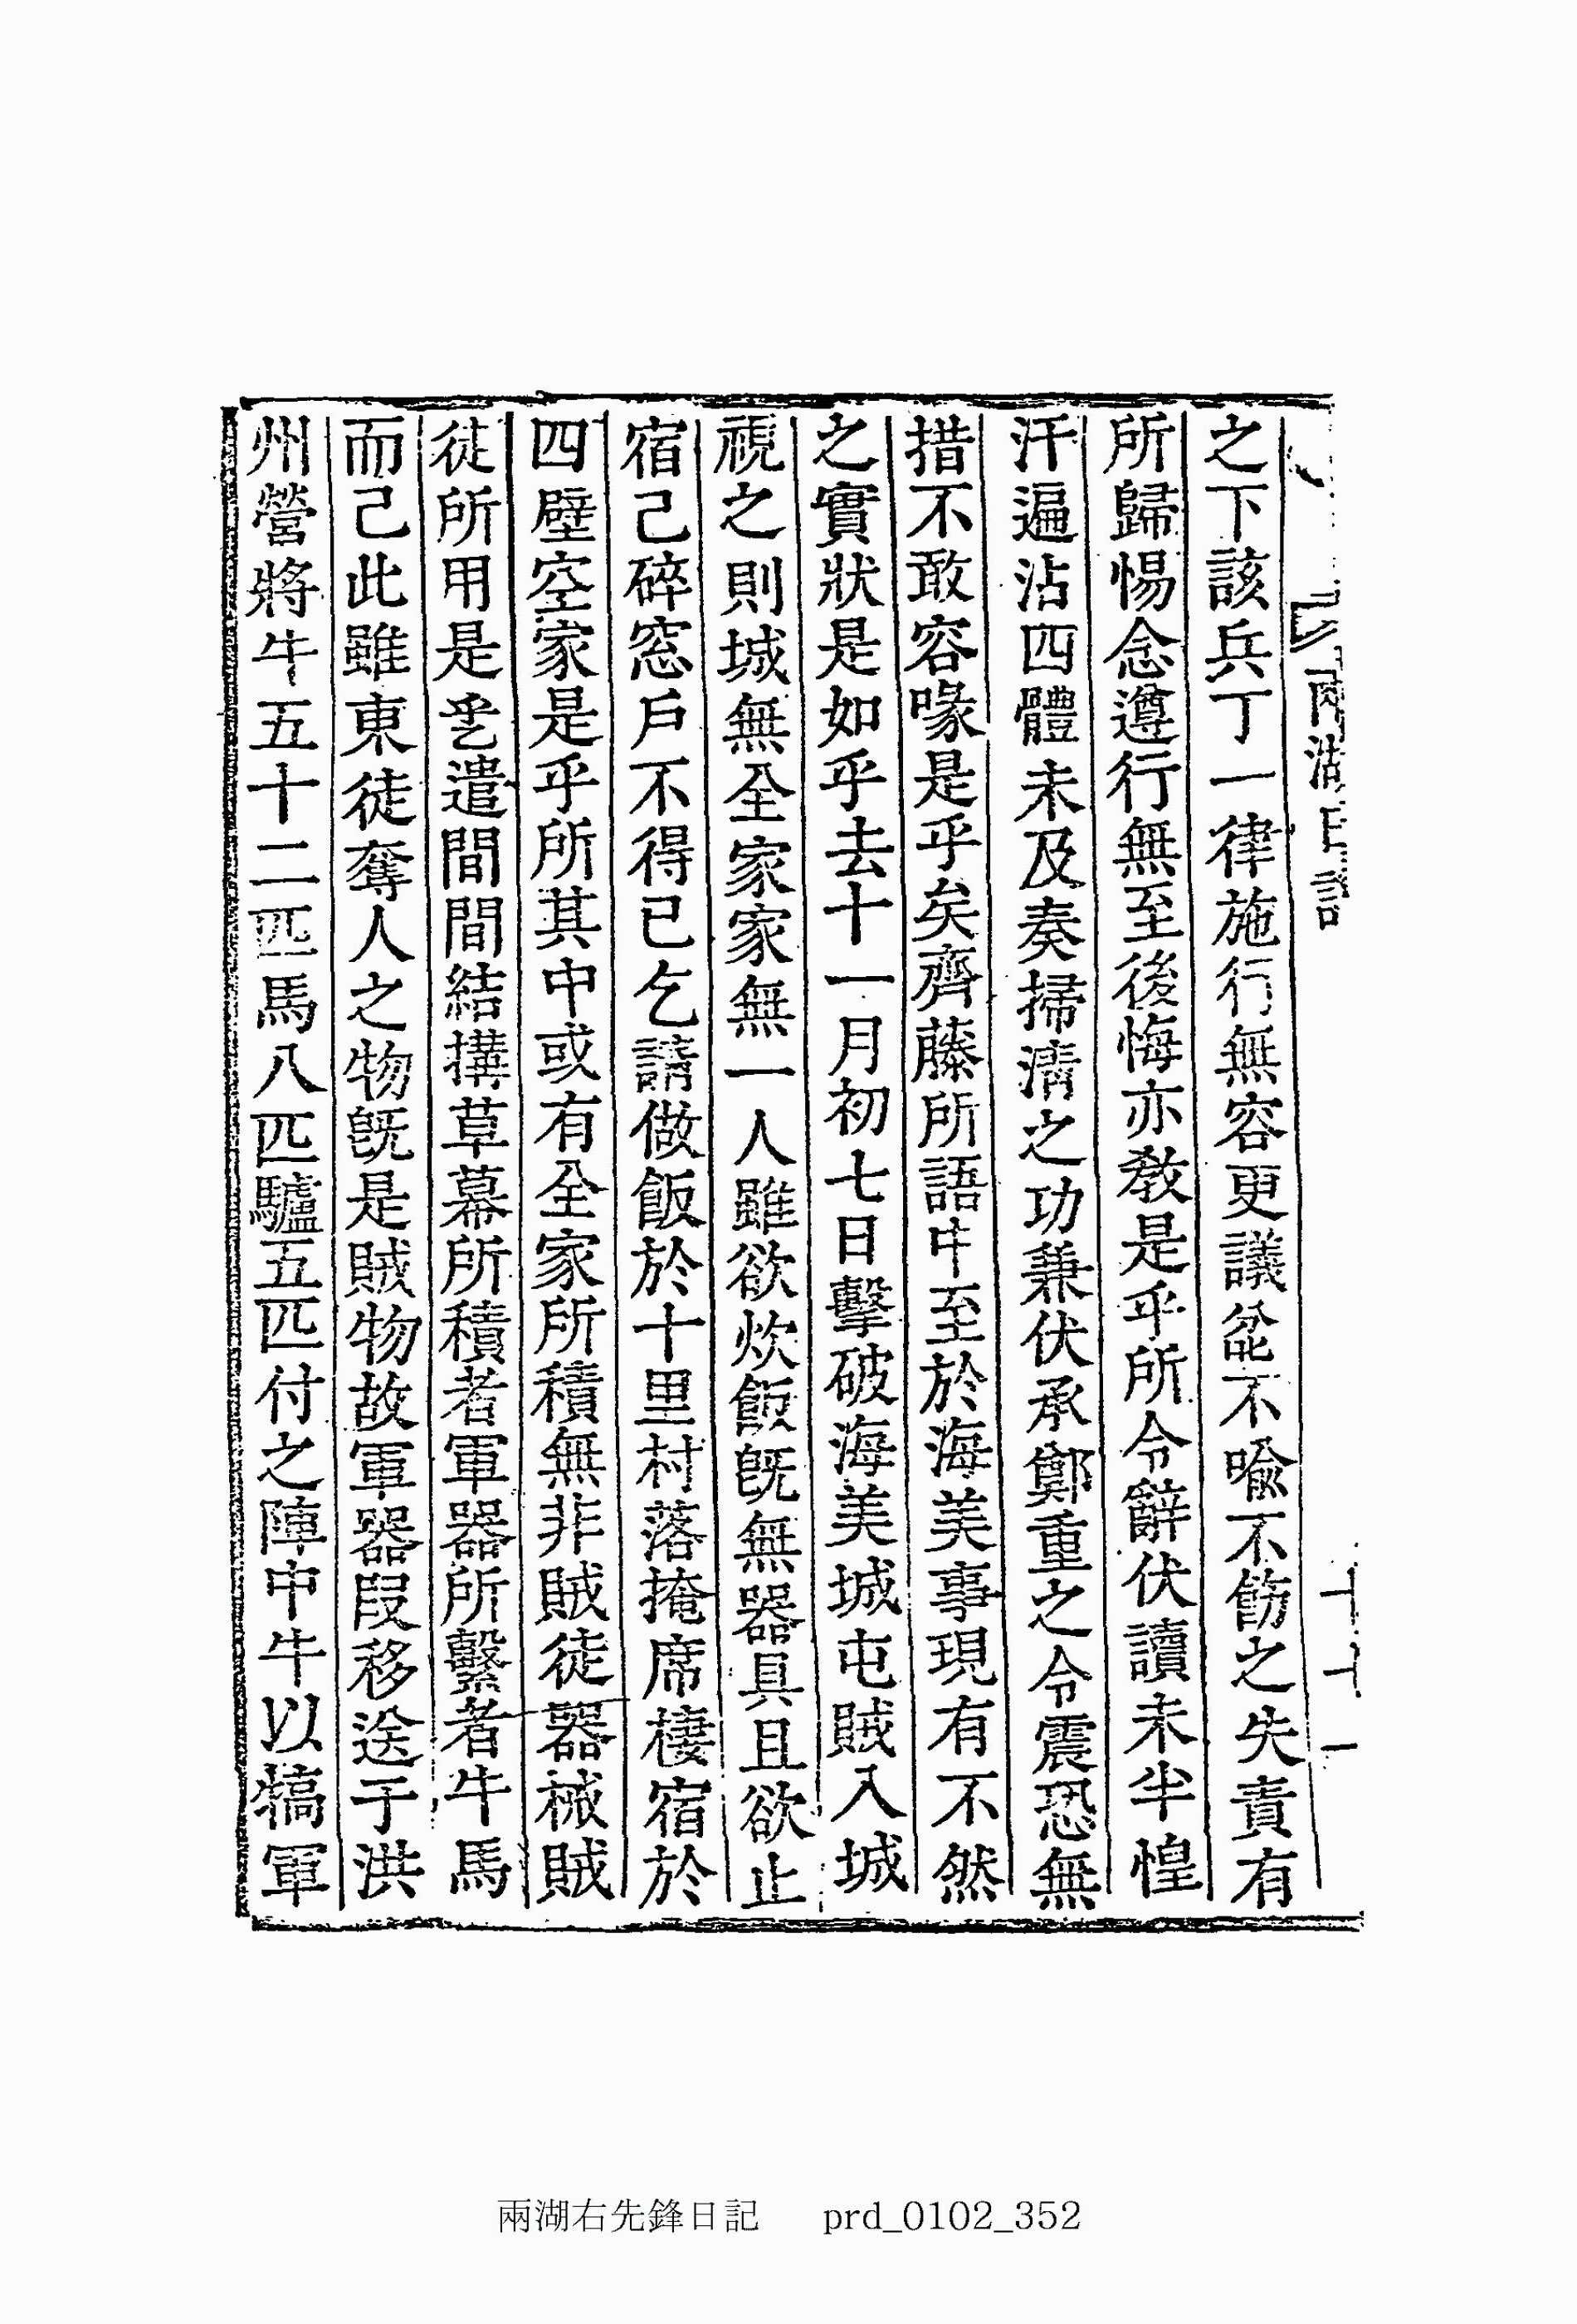 兩湖日記
十十一
之下該兵丁一律施行無容更議毖不喩不飭之失責有
所歸惕念遵行無至後悔亦敎是乎所令辭伏讀未半惶
汗遍沾四體未及奏掃淸之功兼伏承鄭重之令震恐無
措不敢容喙是乎矣齊藤所語中至於海美事現有不然
之實狀是如乎去十一月初七日擊破海美城屯賊入城
視之則城無全家家無一人雖欲炊飯旣無器具且欲止
宿己碎窓戶不得已乞請做飯於十里村落掩席棲宿於
四壁空家是乎所其中或有全家所積無非賊徒器械賊
徒所用是乎遣間間結搆草幕所積者軍器所繫者牛馬
而己此雖東徒奪人之物旣是賊物故軍器段移送于洪
州營將牛五十二匹馬八匹驢五匹付之陣中牛以犒軍
兩湖右先鋒日記 prd_0102_352